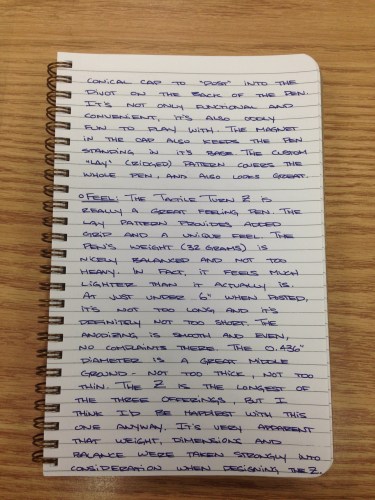 CONICAL CAP TO "POST" INTO THE
DIVOT ON THE BACK OF THE PEN.
IT'S NOT ONLY FUNCTIONAL AND
CONVENIENT, IT'S ALSO ODDLY
FUN TO PLAY WITH. THE MAGNET
IN THE CAP ALSO KEEPS THE PEN
STANDING IN ITS BASE. THE CUSTOM
"LAY" (RIDGED) PATTERN COVERS THE
WHOLE PEN, AND ALSO LOOKS GREAT.
○ FEEL: THE TACTILE TURN Z IS
REALLY A GREAT FEELING PEN. THE
LAY PATTERN PROVIDES ADDED
GRIP AND A UNIQUE FEEL. THE
PEN'S WEIGHT (32 GRAMS) IS
NICELY BALANCED AND NOT TOO
HEAVY. IN FACT, IT FEELS MUCH
LIGHTER THAN IT ACTUALLY IS.
AT JUST UNDER 6" WHEN POSTED,
IT'S NOT TOO LONG AND IT'S
DEFINITELY NOT TOO SHORT. THE
ANODIZING IS SMOOTH AND EVEN,
NO COMPLAINTS THERE. THE 0.436"
DIAMETER IS A GREAT MIDDLE
GROUND - NOT TOO THICK, NOT TOO
THIN. THE Z IS THE LONGEST OF
THE THREE OFFERINGS, BUT I
THINK I'D BE HAPPIEST WITH THIS
ONE ANYWAY. IT'S VERY APPARENT
THAT WEIGHT, DIMENSIONS AND
BALANCE WERE TAKEN STRONGLY INTO
CONSIDERATION WHEN DESIGNING THE Z.